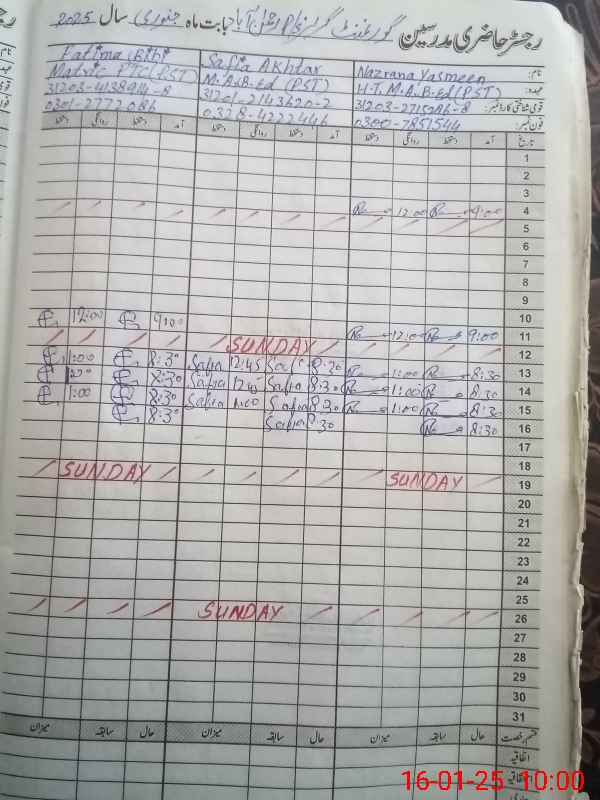 رجسٹر حاضری مدرسین گورنمنٹ گرلز بابت ماہ جنوری سال 2025
نام: Nazrana Yasmeen Safia Akhtar Fatima Bibi
عہدہ: H.T. M.A.B-Ed (PST) M.A.B-Ed (PST) Matric PTC (PST)
قومی شناختی کارڈ نمبر: 31203-2715286-8 31201-2143620-2 31203-4138914-8
فون نمبر: 0300-7851544 0328-4222446 0301-2772086
تاریخ آمد دستخط روانگی دستخط آمد دستخط روانگی دستخط آمد دستخط روانگی دستخط
1
2
3
4 9:00 12:00
5
6
7
8
9
10 9:00 12:00
11 9:00 12:00
12 SUNDAY
13 8:30 1:00 8:30 Safia 12:45 Safia 8:30 1:00
14 8:30 1:00 8:30 Safia 12:45 Safia 8:30
15 8:30 1:00 8:30 Safia 1:00 Safia 8:30 1:00
16 8:30 8:30 Safia 8:30
17
18
19 SUNDAY SUNDAY
20
21
22
23
24
25
26 SUNDAY
27
28
29
30
31
قسم رخصت حال سابقہ میزان حال سابقہ میزان حال سابقہ میزان
اتفاقیہ
16-01-25 10:00